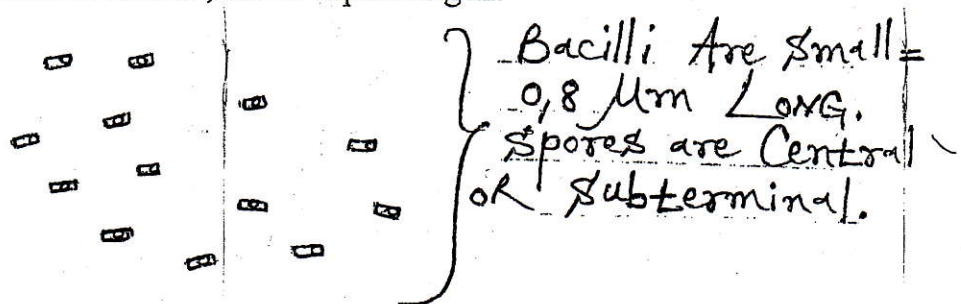 Bacilli Are Small =
0,8 Mm LONG.
Spores are Central
OR Subterminal.